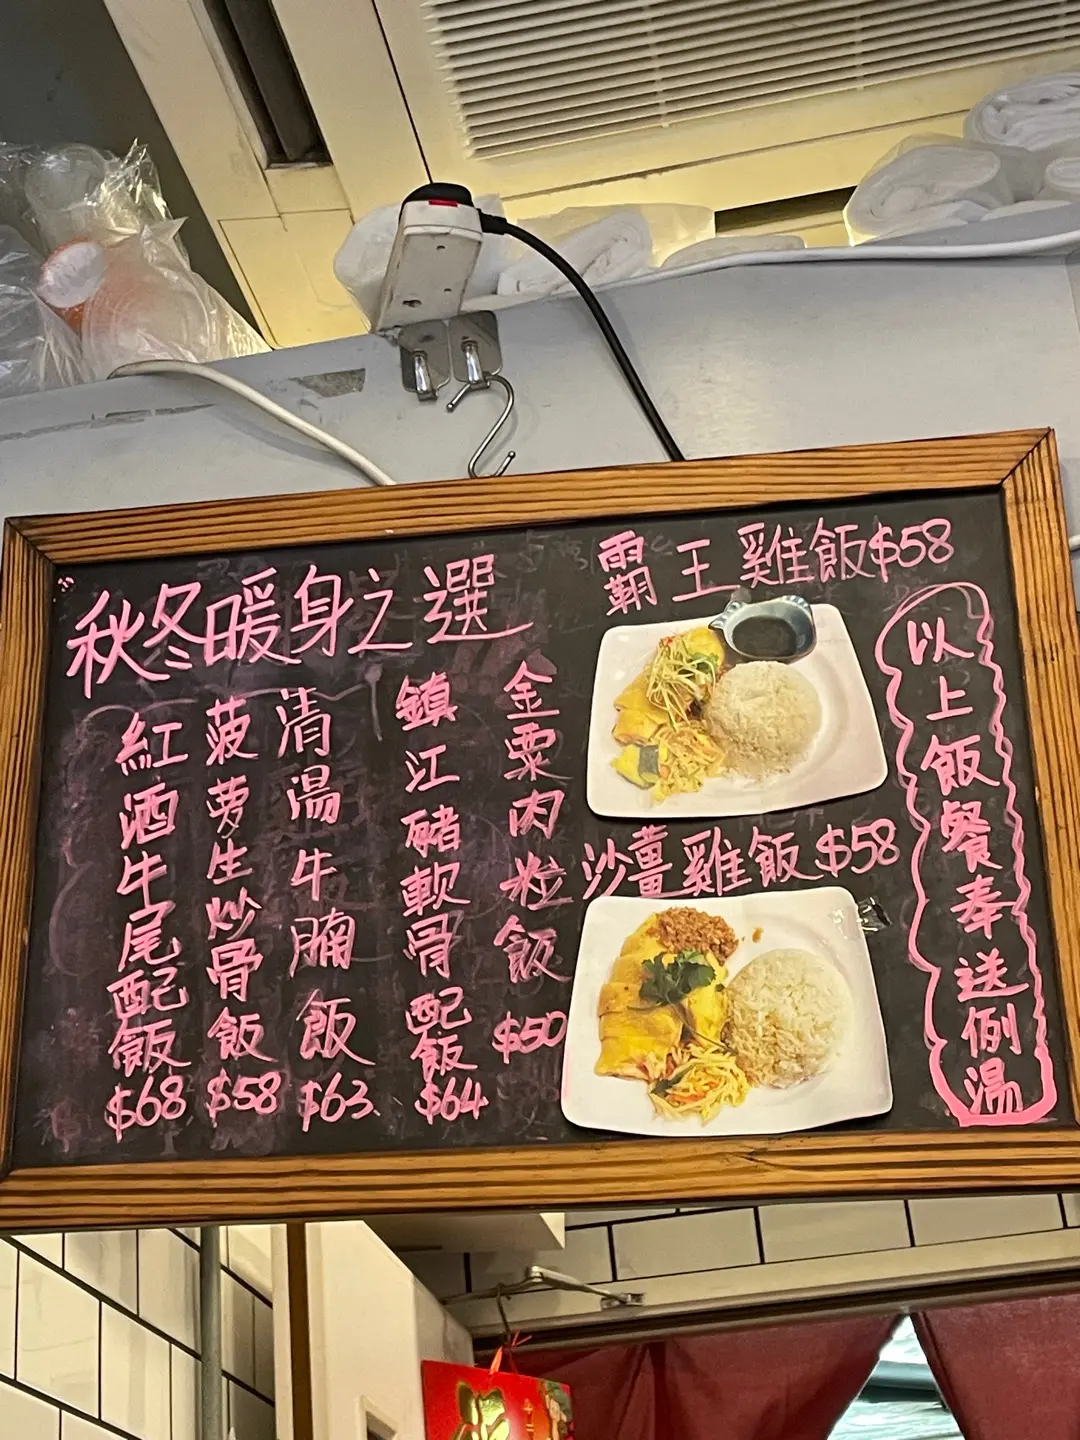 秋冬暖身之選
紅酒牛尾配飯 $68
菠萝生炒骨飯 $58
清湯牛腩飯 $63
鎮江豬軟骨配飯 $64
金粟肉粒飯 $50
霸王雞飯 $58
沙薑雞飯 $58
以上飯餐奉送例湯